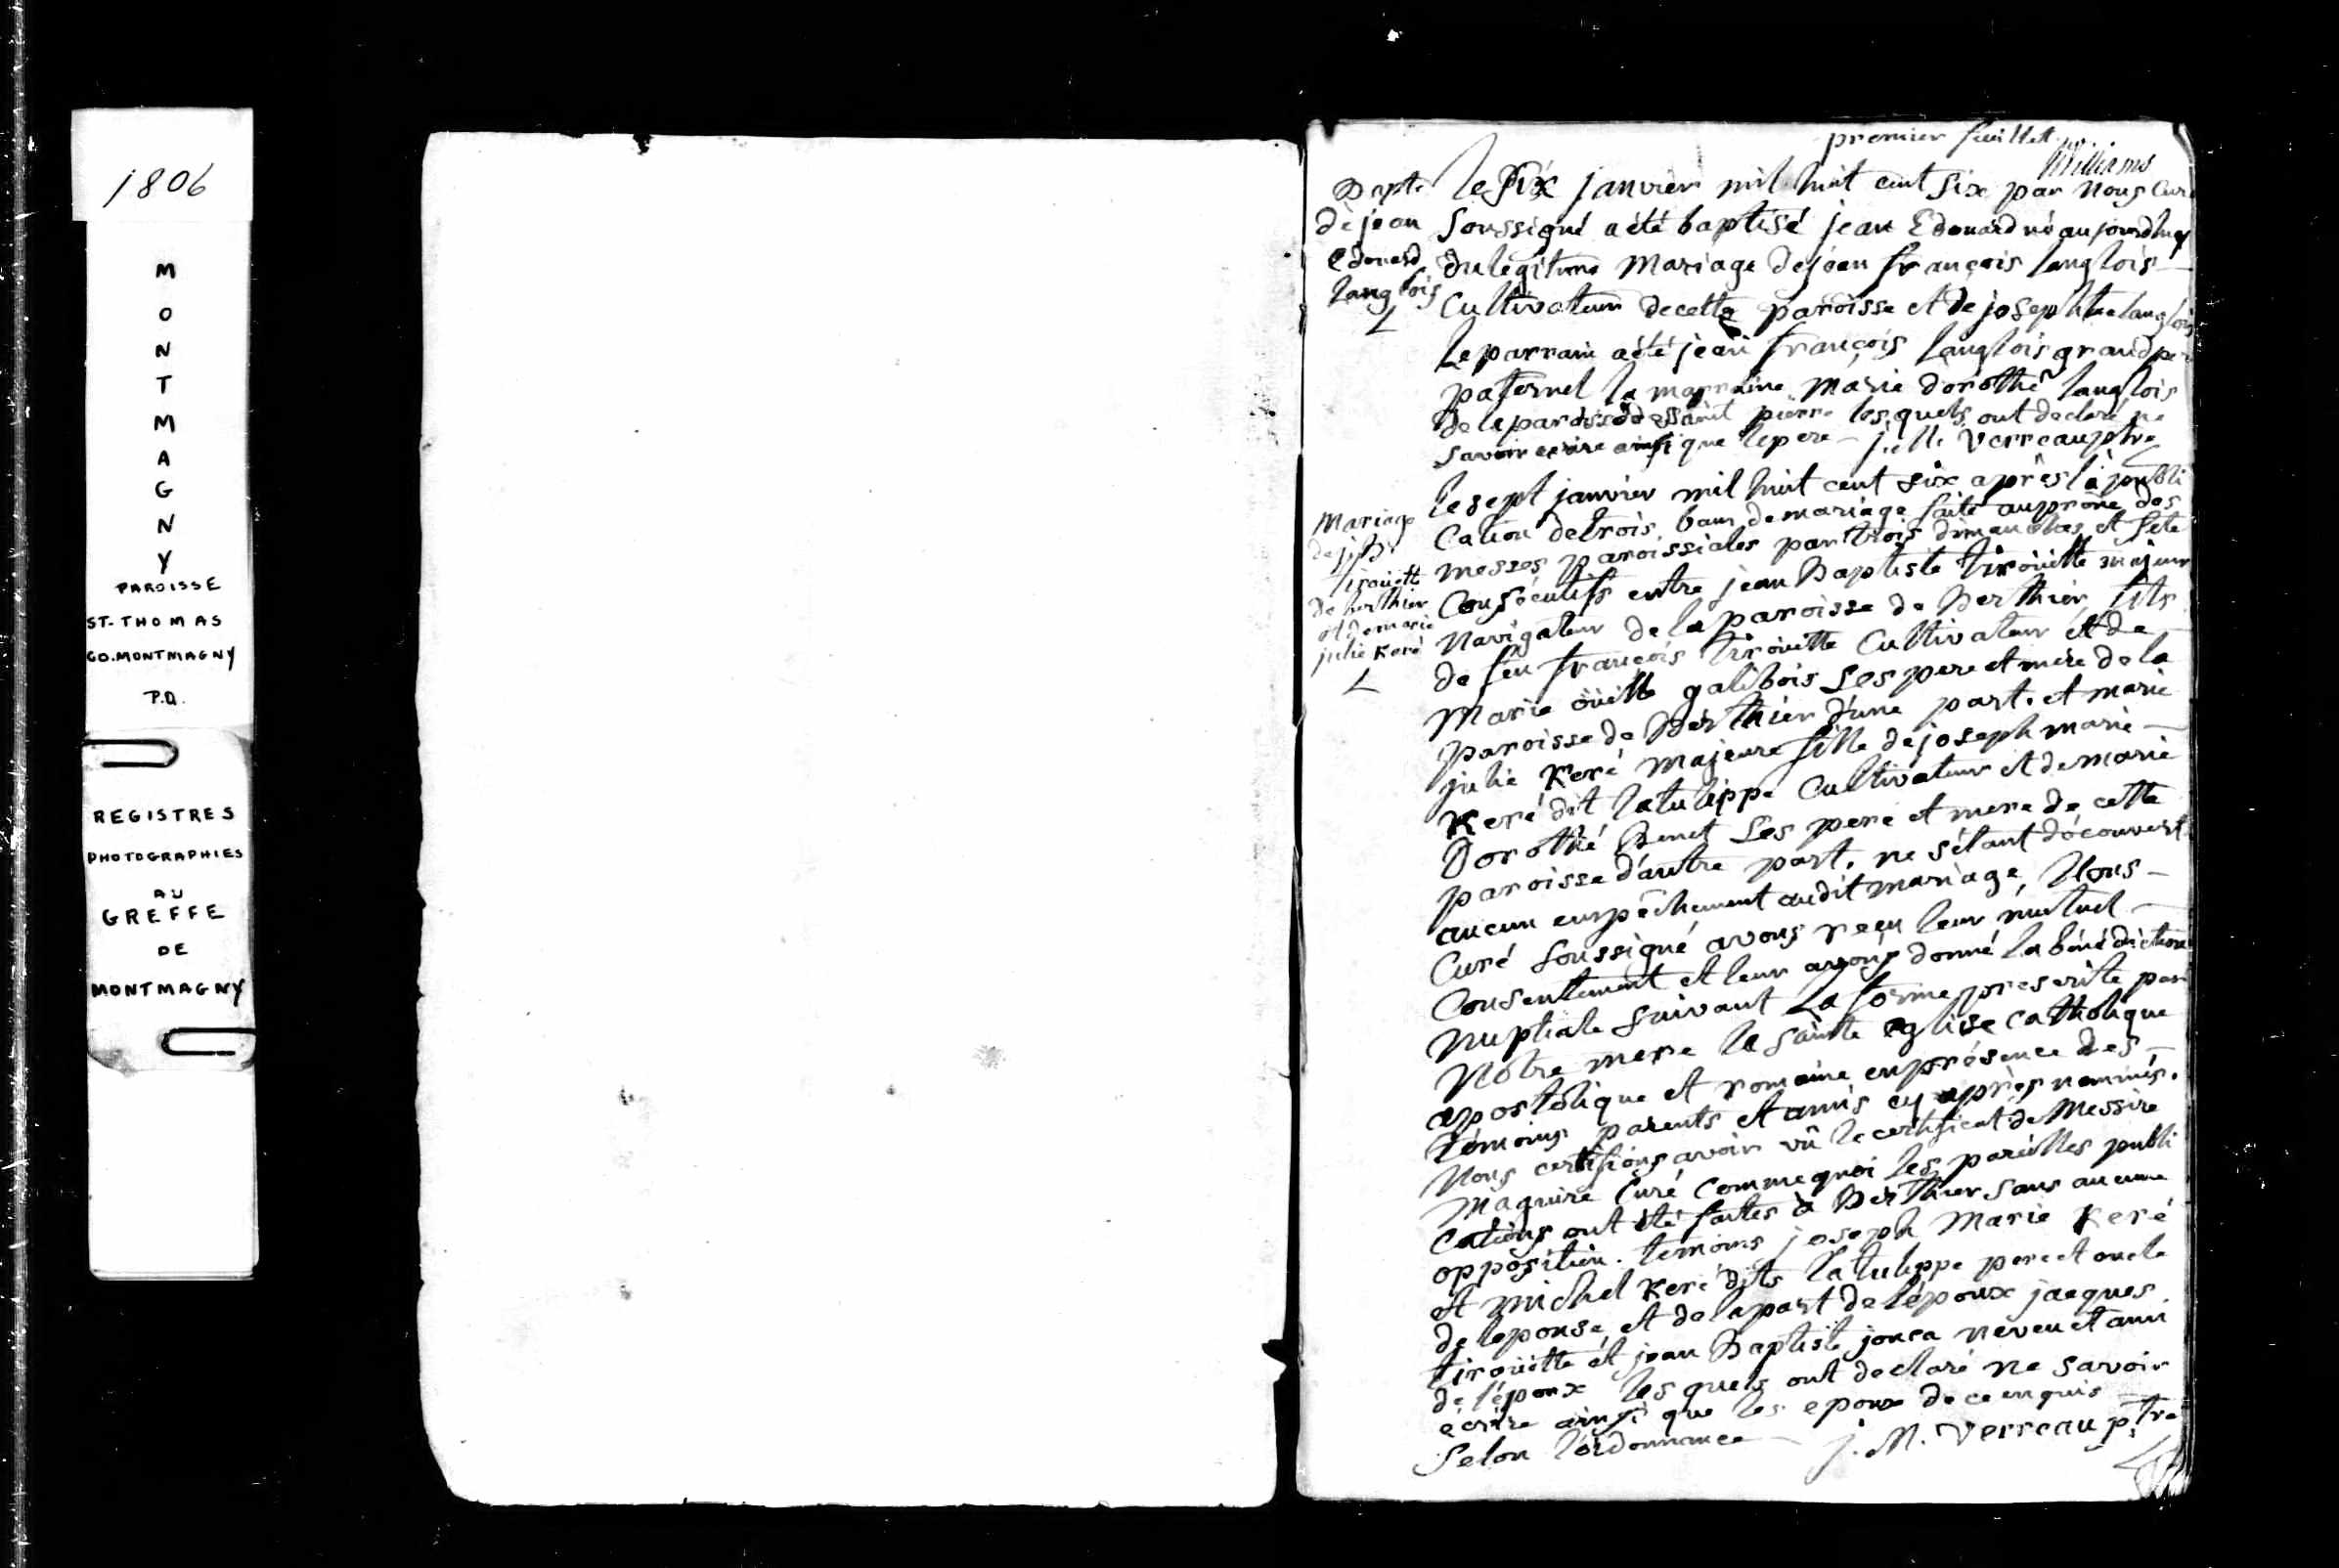 1806
MONTMAGNY
PAROISSE
ST-THOMAS
CO. MONTMAGNY
P.Q.
REGISTRES
PHOTOGRAPHIES
AU
GREFFE
DE
MONTMAGNY
premier feuillett
Williams
Bapte
de jean
Edouard
langlois
L
le six janvier mil huit cent six par nous Curé
Soussigné a été baptisé jean Edouard né aujourdhuy
du légitime Mariage de jean françois langlois
Cultivateur de cette paroisse et de josephte langlois
Le parrain a été jean françois langlois grand pere
paternel la marraine marie dorothé langlois
de la paroisse de saint pierre lesquels ont declaré ne
savoir ecrire ainsi que le pere — j. M. Verreau ptre
Mariage
de j. B.
tirouitt
de berthier
et de marie
julie Keré
L
le sept janvier mil huit cent six après la publi
cation de trois bans de mariage faite au prône des
messes paroissiales par trois dimanches et fete
Consécutifs entre jean Baptiste tirouitte majeur
navigateur de la paroisse de Berthier fils
de feu françois tirouitte Cultivateur et de
Marie galibois Ses pere et mere de la
paroisse de Berthier d'une part. et marie
julie Keré majeure fille de joseph marie
Keré dit latulippe Cultivateur et de marie
Dorothé Benet Ses pere et mere de cette
paroisse d'autre part, ne s'étant découvert
aucun empêchement audit mariage, Nous
Curé Soussigné avons reçu leur mutuel
Consentement et leur avons donné la bénédiction
Nuptiale Suivant La forme prescrite par
Notre mere la Sainte eglise catholique
apostolique et romaine en présence des
témoins parents et amis cy après nommés.
Nous certifions avoir vû le certificat de Messire
Maguire Curé Comme quoi les pareilles publi
cations ont été faites à Berthier Sans aucune
opposition. temoins joseph Marie Keré
et michel Keré dits latulippe pere et oncle
de l'epouse, et de la part de l'époux jacques
tirouitte et jean Baptiste jonca neveu et ami
de l'époux lesquels ont declaré ne savoir
écrire ainsi que les epoux de ce enquis
Selon l'ordonnance — j. M. Verreau ptre